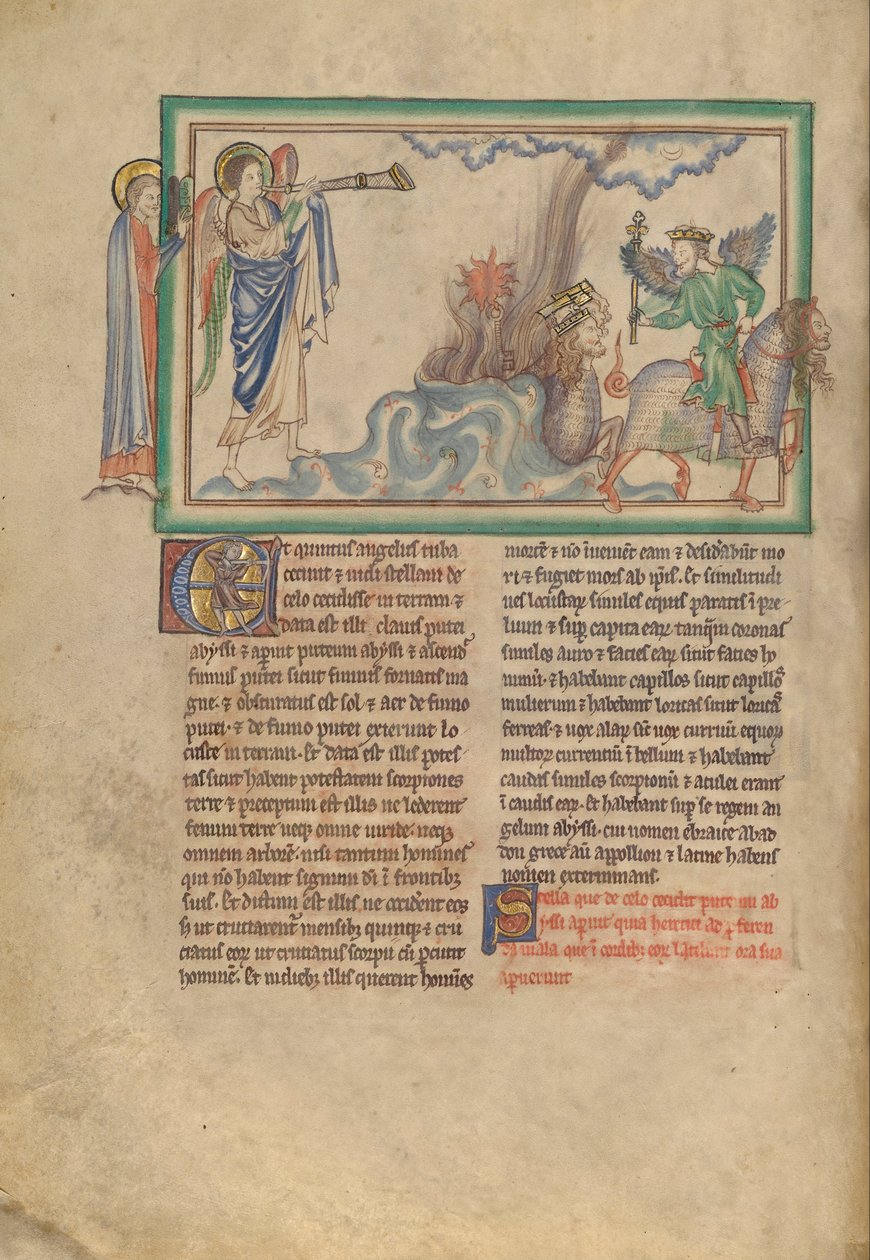 Et quintus angelus tuba
cecinit ⁊ uidi stellam de
celo cecidisse in terram ⁊
data est illi clauis putei
abyssi ⁊ aperuit puteum abyssi ⁊ ascend̾
fumus putei sicut fumus fornacis ma
gne· ⁊ obscuratus est sol ⁊ aer de fumo
putei· ⁊ de fumo putei exierunt lo-
custe in terram· Et data est illis potes-
tas sicut habent potestatem scorpiones
terre ⁊ preceptum est illis ne lederent
fenum terre neqꝫ omne uiride· neqꝫ
omnem arborē· nisi tantum homines
qui nō habent signum dī ī frontibꝫ
suis· Et dictum est illis ne occident eos
sꝫ ut cruciarent̾ mensibꝫ quinqꝫ ⁊ cru
ciatus eoꝝ ut cruciatus scorpii cū ꝑcutit
hominē· Et in diebꝫ illis querent homīes
mortē ⁊ nō īueniēt eam ⁊ desid̾abūt mo
ri ⁊ fugiet mors ab ip̄is· Et similitudi
nes locustaꝝ similes equis paratis ī pre-
lium ⁊ suꝑ capita eaꝝ tanq̄m coronas
similes auro ⁊ facies eaꝝ sicut facies ho
minū· ⁊ habebant capillos sicut capillos
mulierum ⁊ habebant loricas sicut loricas
ferreas· ⁊ uox alaꝝ sic̄ uox curruū equoꝝ
multoꝝ currentiū ī bellum ⁊ habebant
caudas similes scorpionū ⁊ aculei erant
ī caudis eaꝝ· Et habebant suꝑ se regem an
gelum abyssi· cui nomen ebraice abad
don grece aū appollion ⁊ latine habens
nomen exterminans·
Stella que de celo cecidit puteum ab
yssi aperuit quia heretici ad ꝓferen
da mala que ī cordibꝫ eoꝝ latebant ora sua
aperuerunt